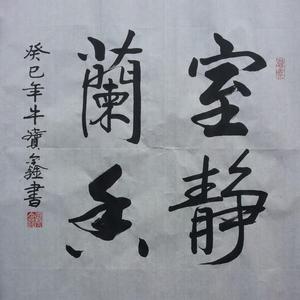 室静
蘭香
癸巳年牛鑫書